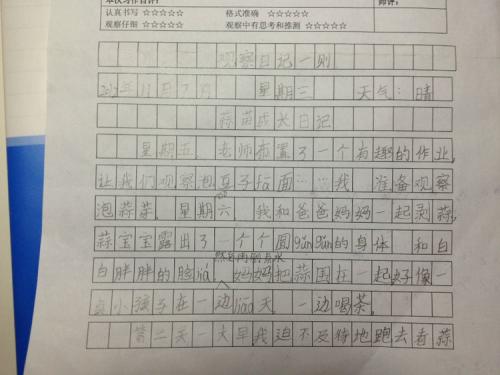 认真书写 ☆☆☆☆☆ 格式准确 ☆☆☆☆☆
观察仔细 ☆☆☆☆☆ 观察中有思考和推测 ☆☆☆☆☆
观察日记一则
年11月7日 星期三 天气:晴
蒜苗成长日记
星期五,老师布置了一个有趣的作业,
让我们观察泡豆子fā面……我 准备观察
泡蒜芽。星期六 我和爸爸妈妈一起剥蒜,
蒜宝宝露出了一个个圆gǔn gǔn的身体 和白
白胖胖的脸liǎ,妈妈把蒜围在一起好像一
小孩子在一边liáo天,一边喝茶。
第二天一大早我迫不及待地跑去看蒜